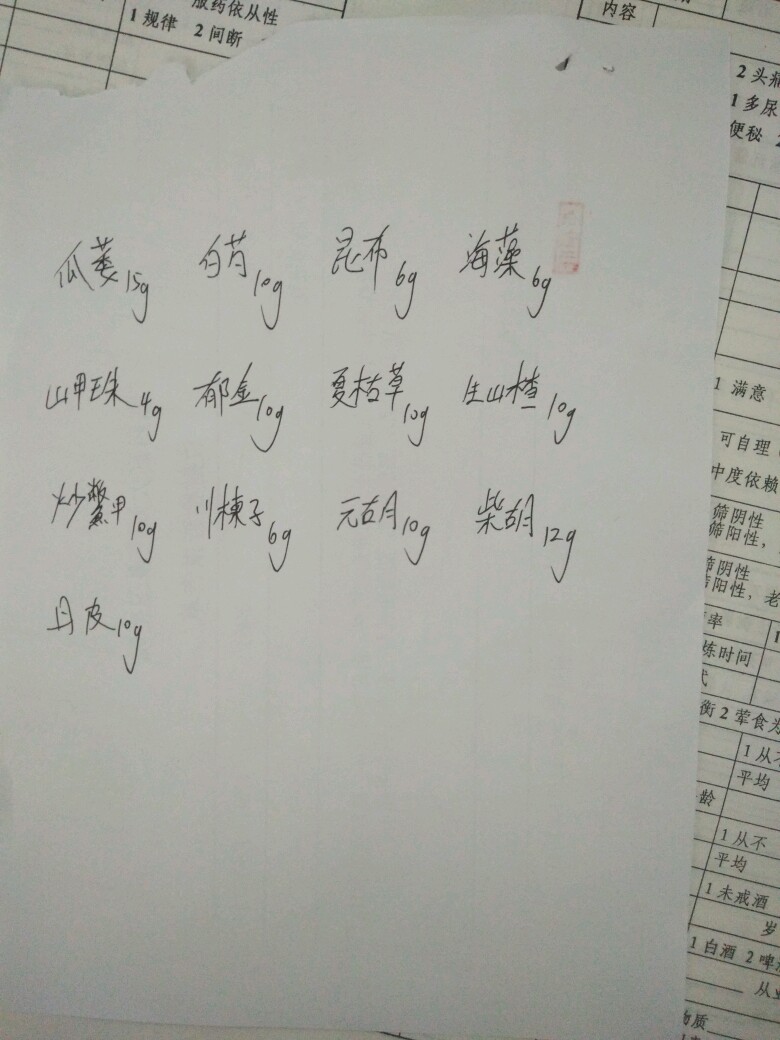 服药依从性
1 规律 2 间断
内容
2 头痛
1 多尿
便秘 2
瓜蒌15g 白芍10g 昆布6g 海藻6g
山甲珠4g 郁金10g 夏枯草10g 生山楂10g
炒鳖甲10g 川楝子6g 元胡10g 柴胡12g
丹皮10g
1 满意
可自理
中度依赖
筛阴性
筛阳性,
筛阴性
阳性,老
率
炼时间
式
衡 2 荤食为
1 从不
平均
龄
1 从不
平均
1 未戒酒
岁
1 白酒 2 啤
从业
物质